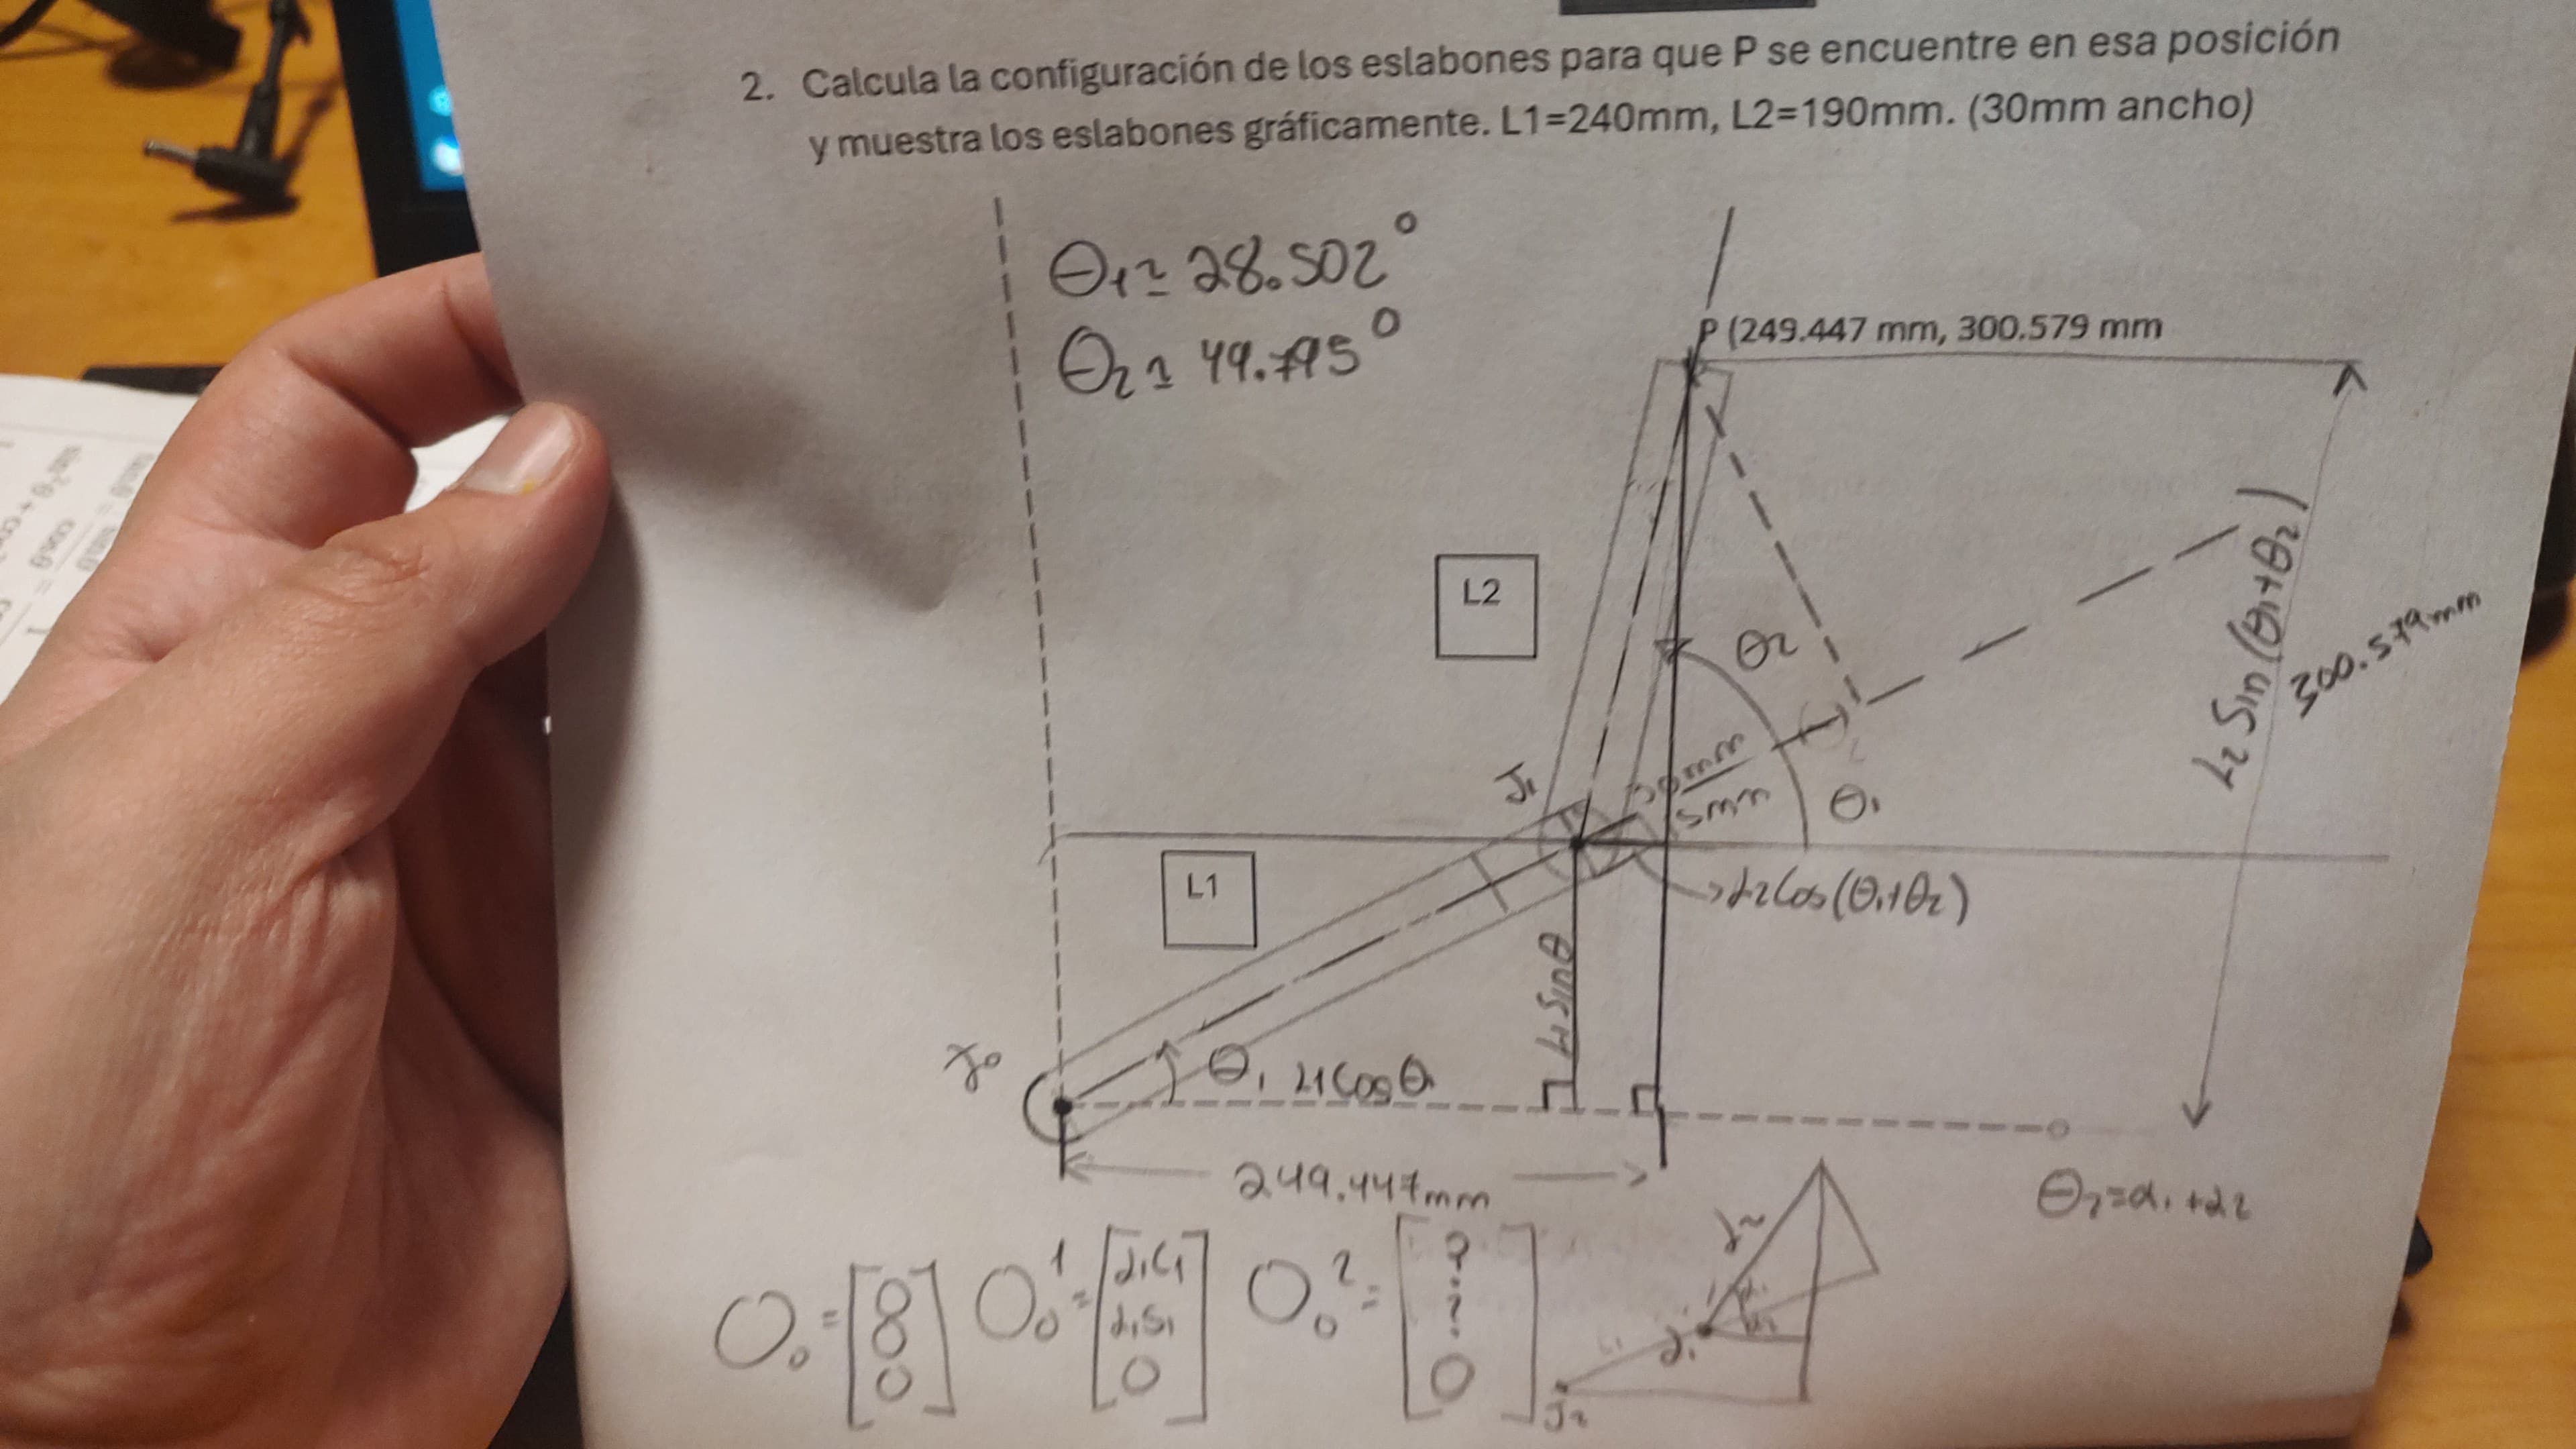 2. Calcula la configuración de los eslabones para que P se encuentre en esa posición
y muestra los eslabones gráficamente. L1=240mm, L2=190mm. (30mm ancho)
θ1≃ 28.502°
θ2≃ 49.795°
P (249.447 mm, 300.579 mm
L2
θ2
L2 Sin(θ1+θ2)
300.579mm
J1
30mm
5mm
θ1
L1
L2Cos(θ1+θ2)
L1 Sinθ
J0
θ1
L1Cosθ1
249.447mm
θ2=α1+α2
O0 = [0 0 0]
O0^1 = [L1C1 L1S1 0]
O0^2 = [? ? 0]
L2
L1
J1
J2